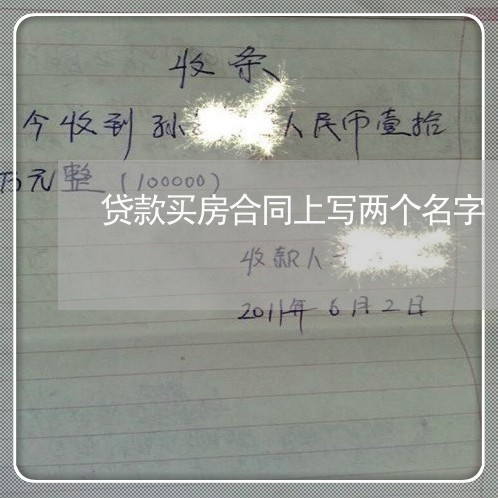 收条
今收到孙 人民币壹拾
万元整（100000）
贷款买房合同上写两个名字
收款人
2011年6月2日